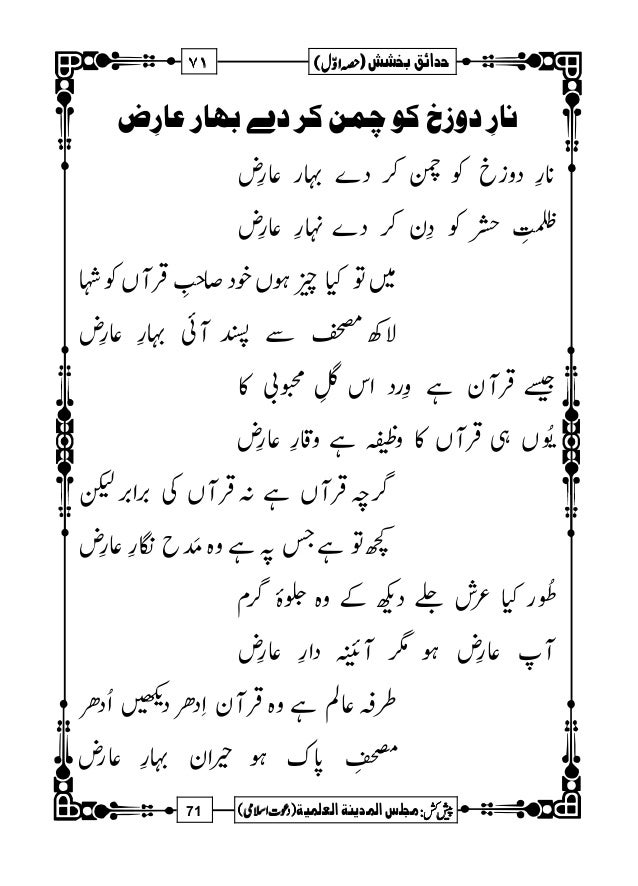 ۷۱
حدائق بخشش (حصہ اوّل)
نارِ دوزخ کو چمن کر دے بھار عارِض
نارِ دوزخ کو چمن کر دے بہار عارِض
ظلمتِ حشر کو دِن کر دے نہارِ عارِض
میں تو کیا چیز ہوں خود صاحبِ قرآں کو شہا
لاکھ مصحف سے پسند آئی بہارِ عارِض
جیسے قرآن ہے وِرد اس گلِ محبوبی کا
یُوں ہی قرآں کا وظیفہ ہے وقارِ عارِض
گرچہ قرآں ہے نہ قرآں کی برابر لیکن
کچھ تو ہے جس پہ ہے وہ مَدح نگارِ عارِض
طُور کیا عرش جلے دیکھ کے وہ جلوۂ گرم
آپ عارِض ہو مگر آئینہ دارِ عارِض
طرفہ عالم ہے وہ قرآن اِدھر دیکھیں اُدھر
مصحفِ پاک ہو حیران بہارِ عارِض
پیش کش: مجلس المدينة العلمية (دعوت اسلامی)
71